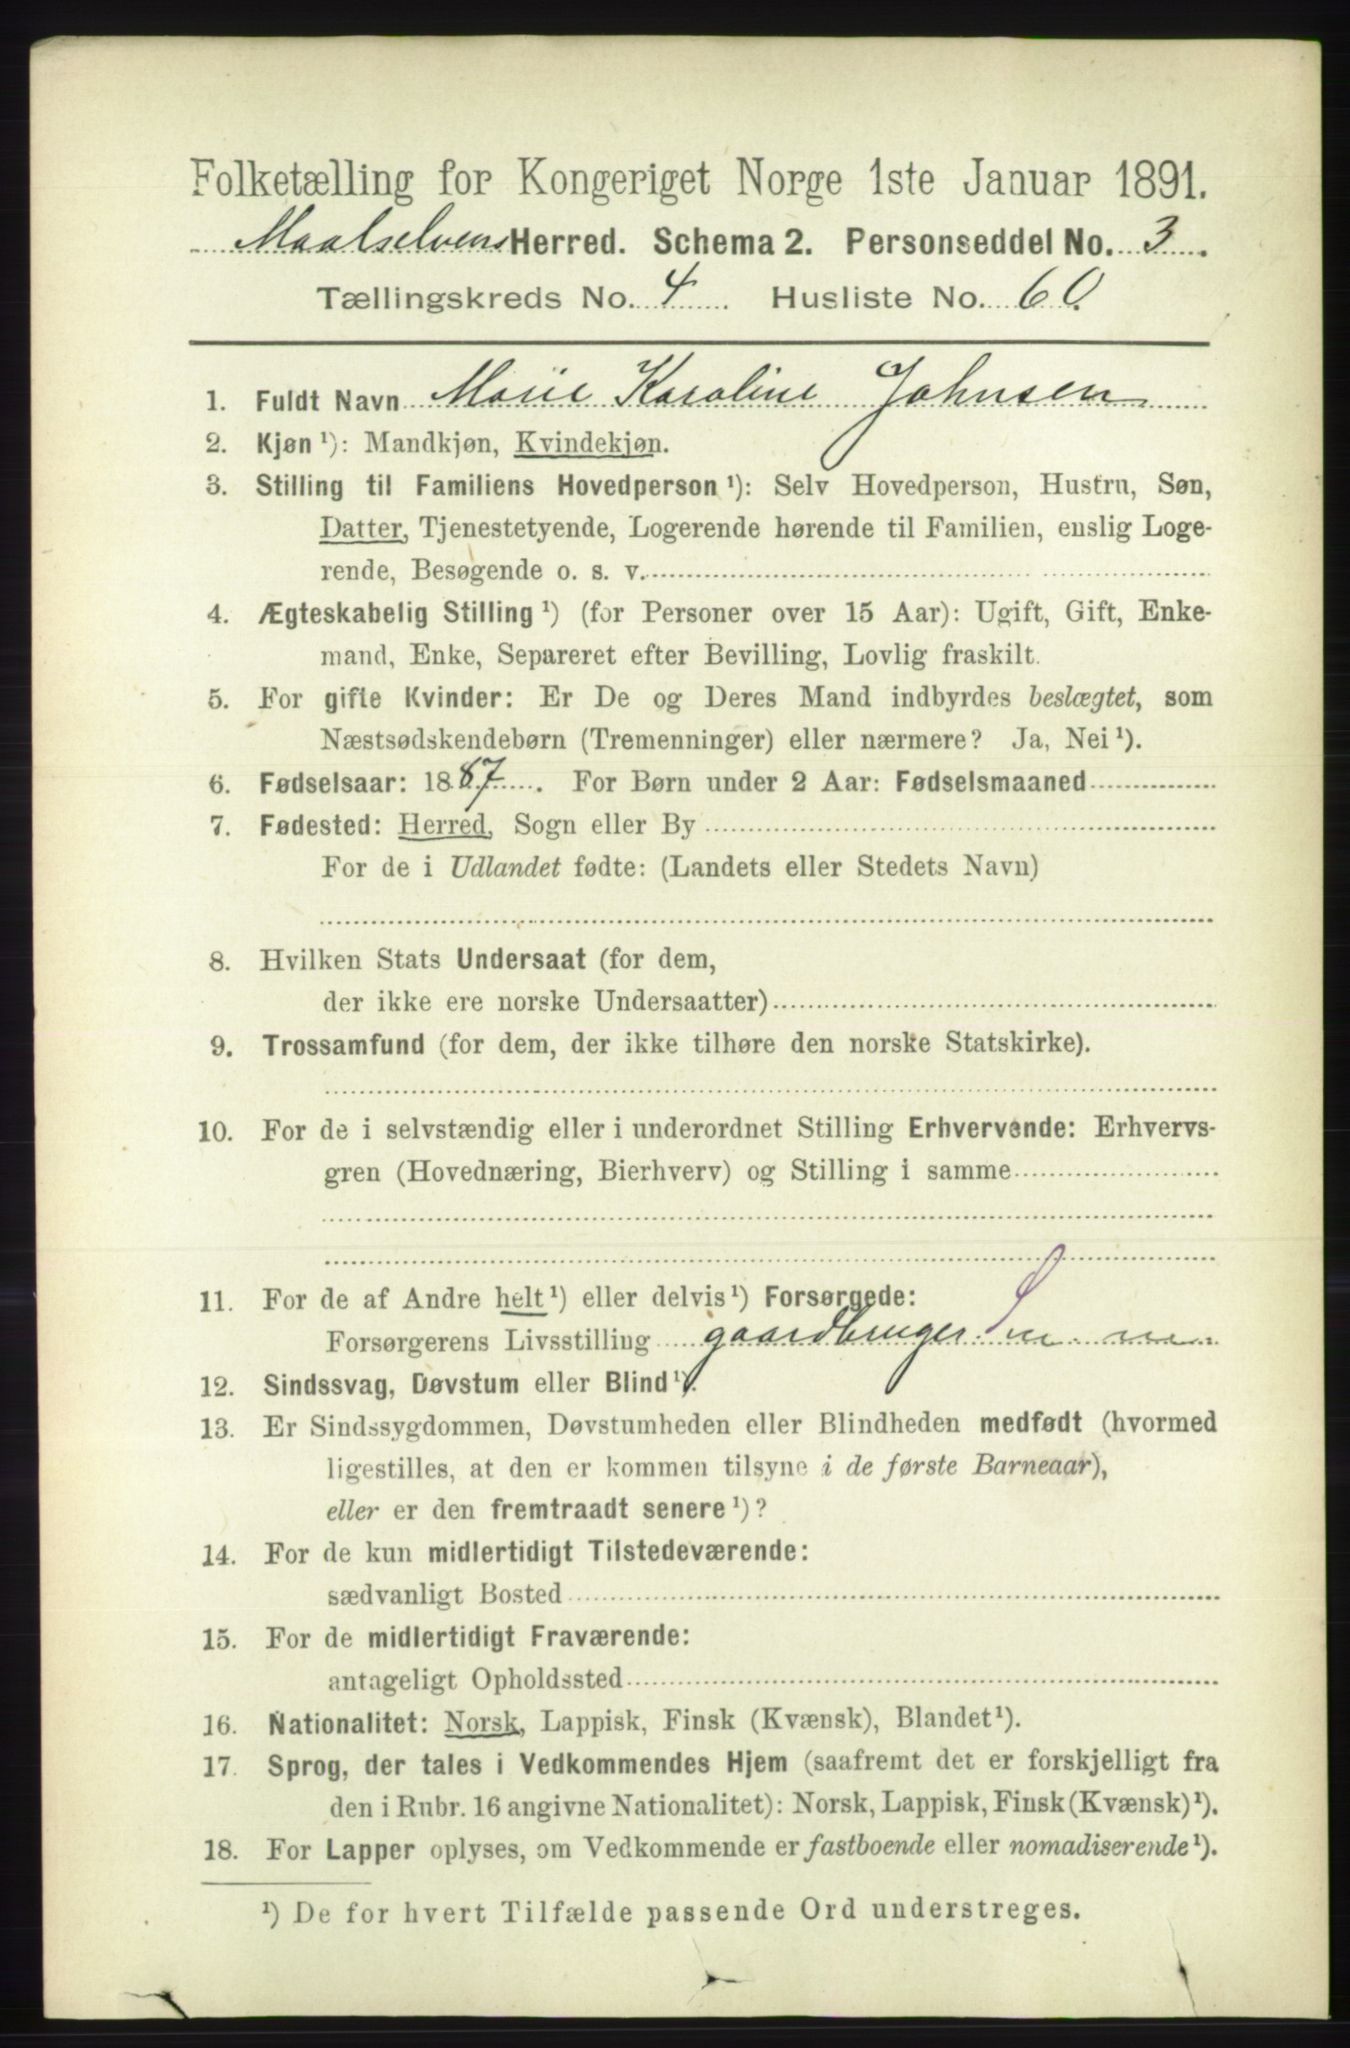 Folketælling for Kongeriget Norge 1ste Januar 1891.
Maalselvens Herred. Schema 2. Personseddel No. 3.
Tællingskreds No. 4. Husliste No. 60.
1. Fuldt Navn Marie Karoline Johnsen
2. Kjøn ¹): Mandkjøn, Kvindekjøn.
3. Stilling til Familiens Hovedperson ¹): Selv Hovedperson, Hustru, Søn,
Datter, Tjenestetyende, Logerende hørende til Familien, enslig Loge-
rende, Besøgende o. s. v.
4. Ægteskabelig Stilling ¹) (for Personer over 15 Aar): Ugift, Gift, Enke-
mand, Enke, Separeret efter Bevilling, Lovlig fraskilt.
5. For gifte Kvinder: Er De og Deres Mand indbyrdes beslægtet, som
Næstsødskendebørn (Tremenninger) eller nærmere? Ja, Nei ¹).
6. Fødselsaar: 1887. For Børn under 2 Aar: Fødselsmaaned
7. Fødested: Herred, Sogn eller By
For de i Udlandet fødte: (Landets eller Stedets Navn)
8. Hvilken Stats Undersaat (for dem,
der ikke ere norske Undersaatter)
9. Trossamfund (for dem, der ikke tilhøre den norske Statskirke).
10. For de i selvstændig eller i underordnet Stilling Erhvervende: Erhvervs-
gren (Hovednæring, Bierhverv) og Stilling i samme
11. For de af Andre helt ¹) eller delvis ¹) Forsørgede:
Forsørgerens Livsstilling gaardbruger
12. Sindssvag, Døvstum eller Blind ¹).
13. Er Sindssygdommen, Døvstumheden eller Blindheden medfødt (hvormed
ligestilles, at den er kommen tilsyne i de første Barneaar),
eller er den fremtraadt senere ¹)?
14. For de kun midlertidigt Tilstedeværende:
sædvanligt Bosted
15. For de midlertidigt Fraværende:
antageligt Opholdssted
16. Nationalitet: Norsk, Lappisk, Finsk (Kvænsk), Blandet ¹).
17. Sprog, der tales i Vedkommendes Hjem (saafremt det er forskjelligt fra
den i Rubr. 16 angivne Nationalitet): Norsk, Lappisk, Finsk (Kvænsk) ¹).
18. For Lapper oplyses, om Vedkommende er fastboende eller nomadiserende ¹).
¹) De for hvert Tilfælde passende Ord understreges.